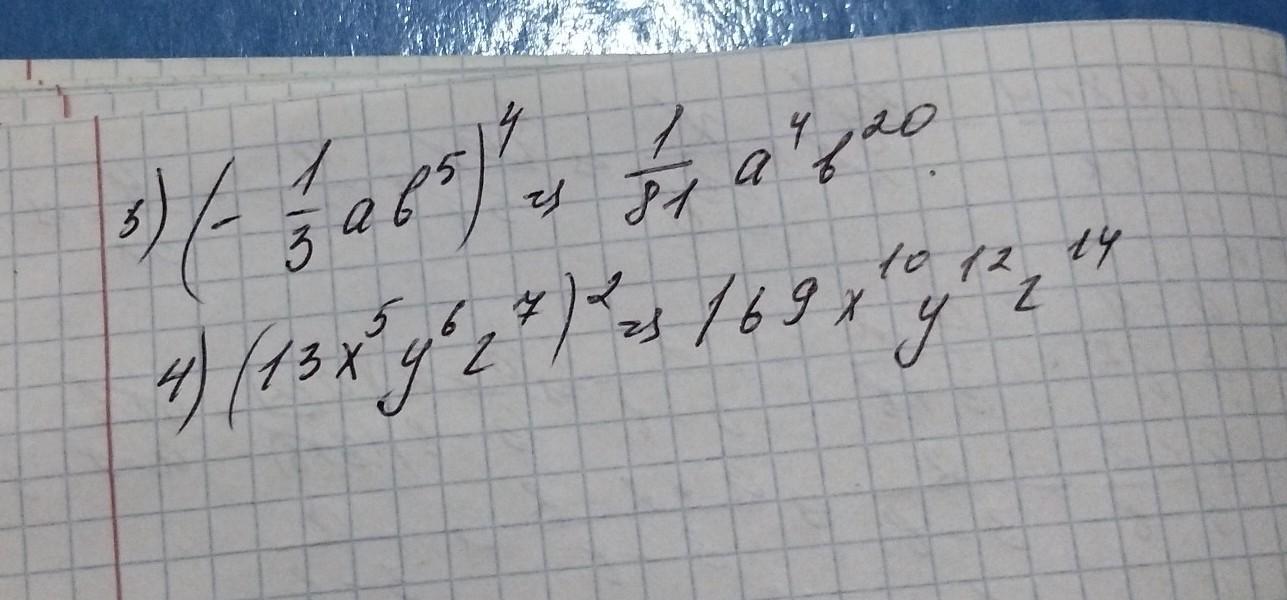 3) (- 1/3 ab⁵)⁴ = 1/81 a⁴b²⁰.
4) (13x⁵y⁶z⁷)² = 169x¹⁰y¹²z¹⁴